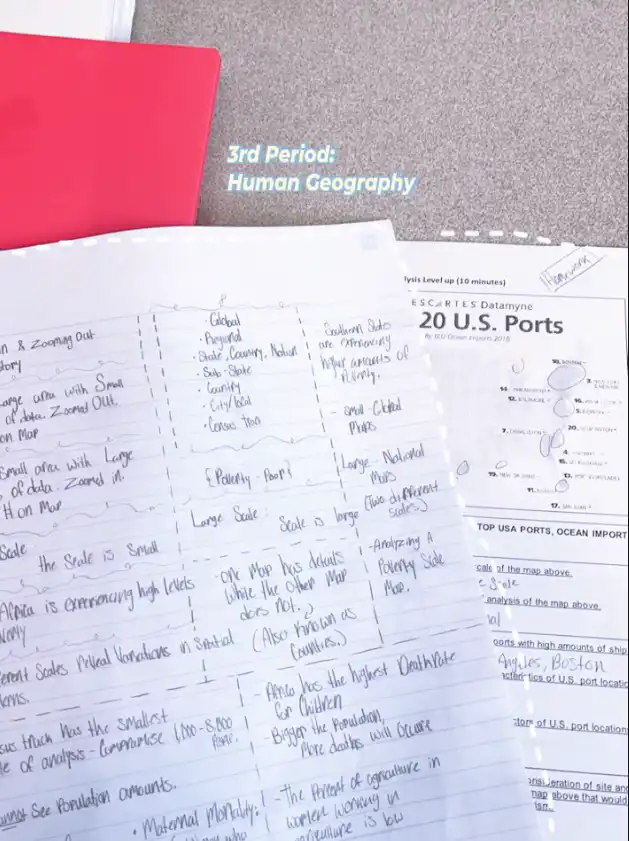 3rd Period:
Human Geography
n & Zooming Out
tory
arge area with Small
of data. Zoomed Out.
on Map
Small area with Large
of data. Zoomed in.
on Map
Scale:
the Scale is Small
Africa is experiencing high levels
erent Scales Reveal Variations in Spatial
erns.
sus track has the smallest
le of analysis - Compromise 1,000-8,000
annot See Population amounts.
Global
Regional
State, Country, Nation
Sub-State
Country
City/local
Census Tract
{Poverty - Poor}
Large Scale:
Scale is large
one Map has details
while the Other Map
does not.
(Also Known as
Counties.)
Africa has the highest Death Rate
for Children
Bigger the Population,
More deaths will Occure
Maternal Mortality:
who
Southern States
are experiencing
higher amounts of
Poverty.
- Small - Global
Maps
Large - National
Maps
(Two different
scales)
- Analyzing A
Poverty Scale
Map.
- The Percent of agriculture in
women working in
agriculture is low
Homework
lysis Level up (10 minutes)
ESCARTES Datamyne
20 U.S. Ports
TOP USA PORTS, OCEAN IMPORT
cale of the map above.
analysis of the map above.
ports with high amounts of ship
Angeles, Boston
cteristics of U.S. port locatio
ctors of U.S. port location
onsideration of site and
map above that would
ism.